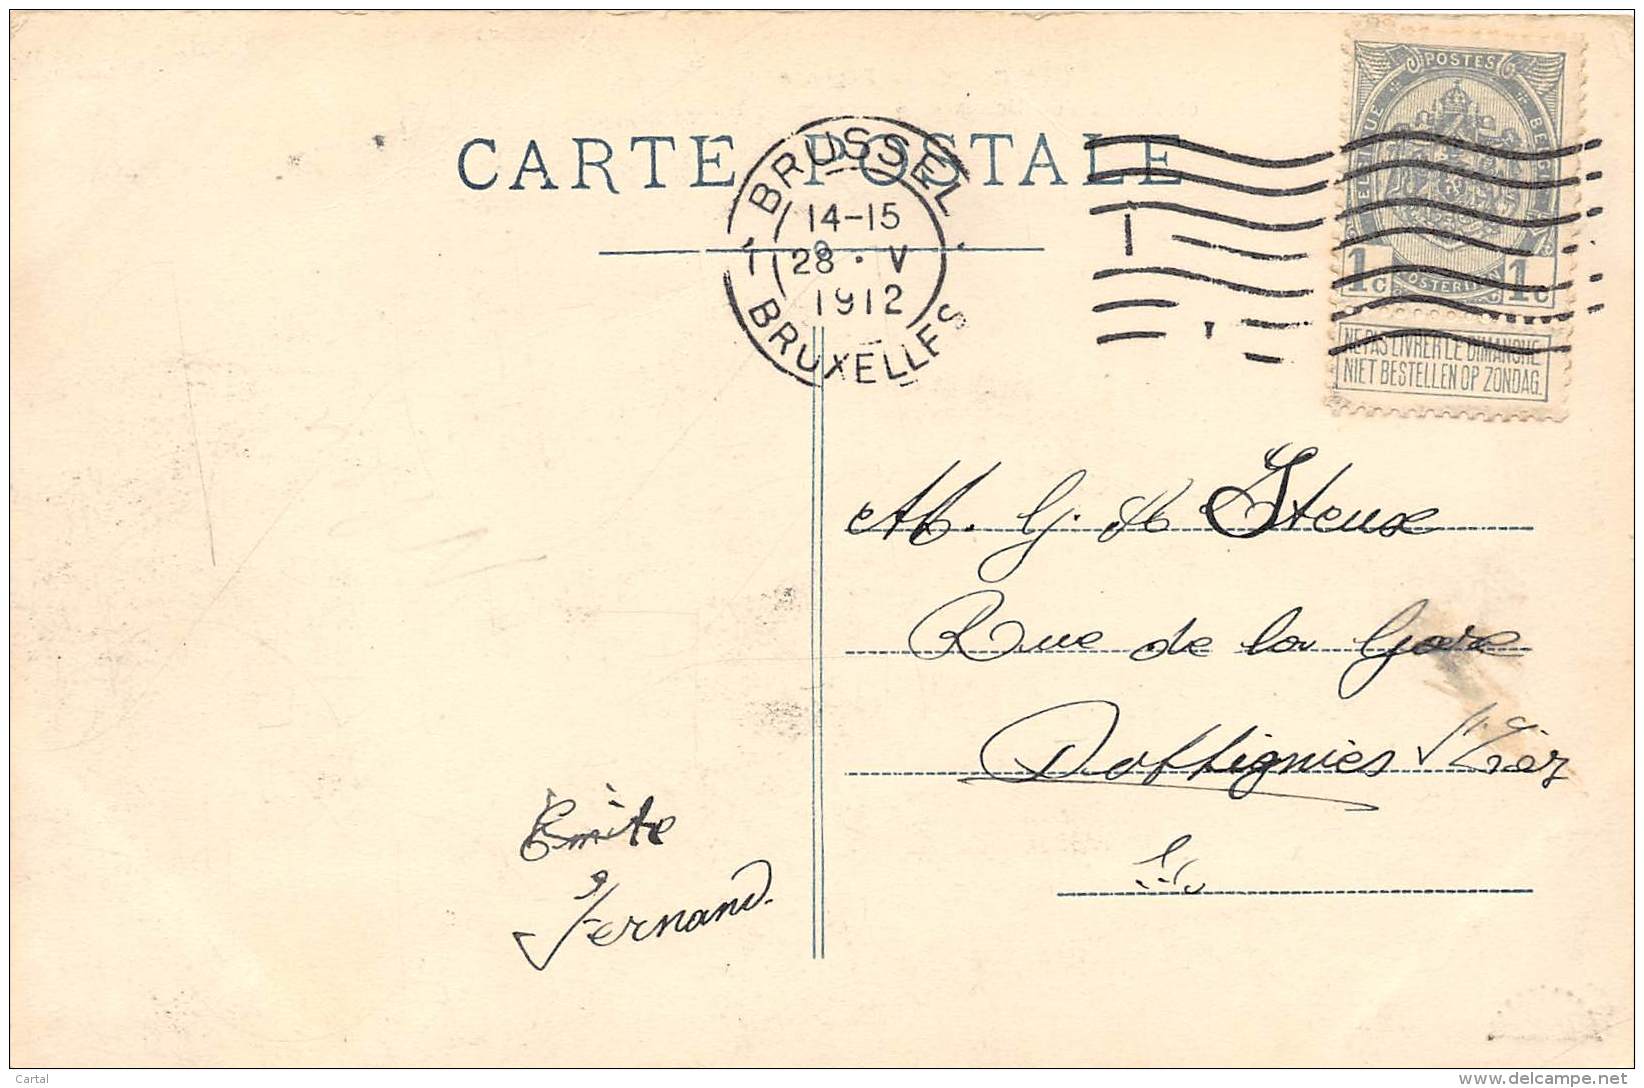 CARTE POSTALE
BRUSSEL
14-15
1 28 · V
1912
BRUXELLES
POSTES
BELGIQUE
BELGIË
POSTERIJEN
1c 1c
NE PAS LIVRER LE DIMANCHE
NIET BESTELLEN OP ZONDAG.
M. G. Steux
Rue de la Gare
Dottignies
Emile
Fernand.
Cartal
delcampe.net